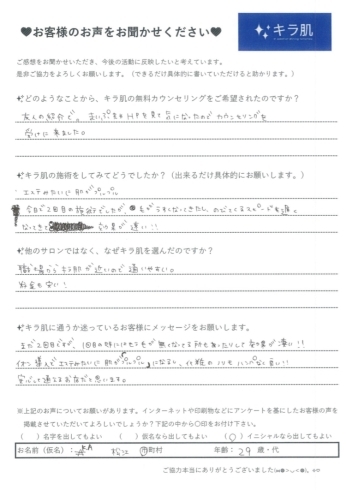 ♥お客様のお声をお聞かせください♥
キラ肌
ご感想をお聞かせいただき、今後の活動に反映したいと考えています。
是非ご協力をよろしくお願いします。（できるだけ具体的に書いていただけると助かります。）
どのようなことから、キラ肌の無料カウンセリングをご希望されたのですか？
友人の紹介で。 HPを見て気になったのでカウンセリングを
受けに来ました。
キラ肌の施術をしてみてどうでした？（出来るだけ具体的にお願いします。）
エステみたいに肌がプルプル
今日が2回目の施術でしたが、毛がうすくなってきたし、のびてくるスピードも遅く
なってきて 効果が速い!!
他のサロンではなく、なぜキラ肌を選んだのですか？
職場からキラ肌が近いので通いやすい。
料金も安い!
キラ肌に通うか迷っているお客様にメッセージをお願いします。
まだ2回目ですが、1回目の時にはえてた毛が無くなってる所もあったりして効果が凄い!!
イオン導入でエステみたいに肌がプルプルになるし、化粧のノリもハンパなく良い!!
安心して通えるお店だと思います。
※上記のお声についてお願いがあります。インターネットや印刷物などにアンケートを基にしたお客様の声を
掲載させていただいてよろしいでしょうか？下記の中から〇印をお付け下さい。
（　）名字を出してもよい　（　）仮名なら出してもよい　（〇）イニシャルなら出してもよい
お名前（仮名）： KA 松江 市町村 年齢：29 歳・代
ご協力本当にありがとうございました